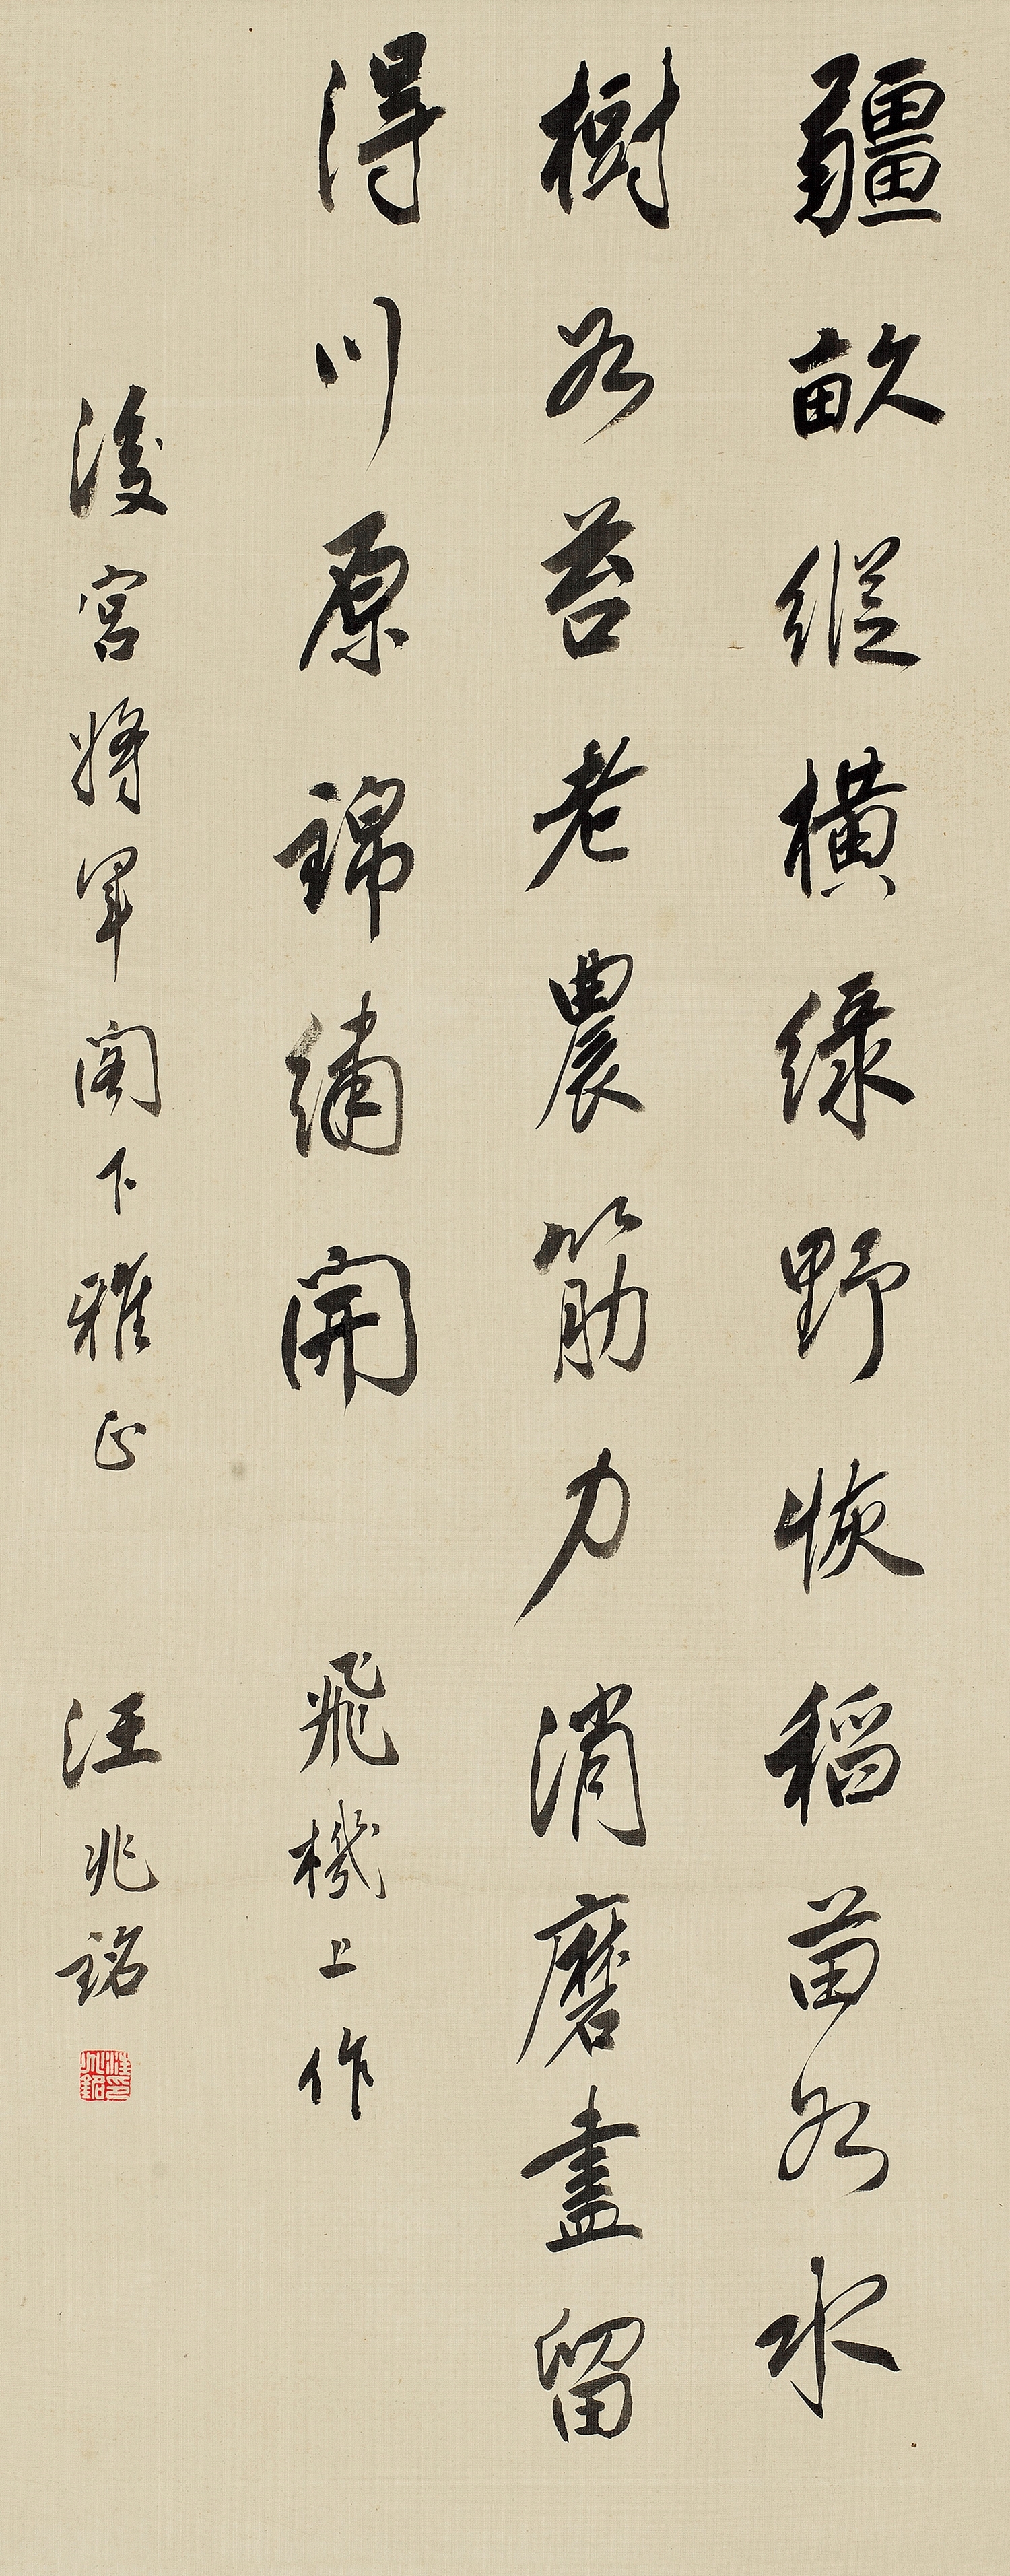 疆畝縱橫綠野恢稻苗如水
樹如苔老農筋力消磨盡留
得川原錦繡開　飛機上作
後宮將軍閣下雅正　汪兆銘
汪兆銘印